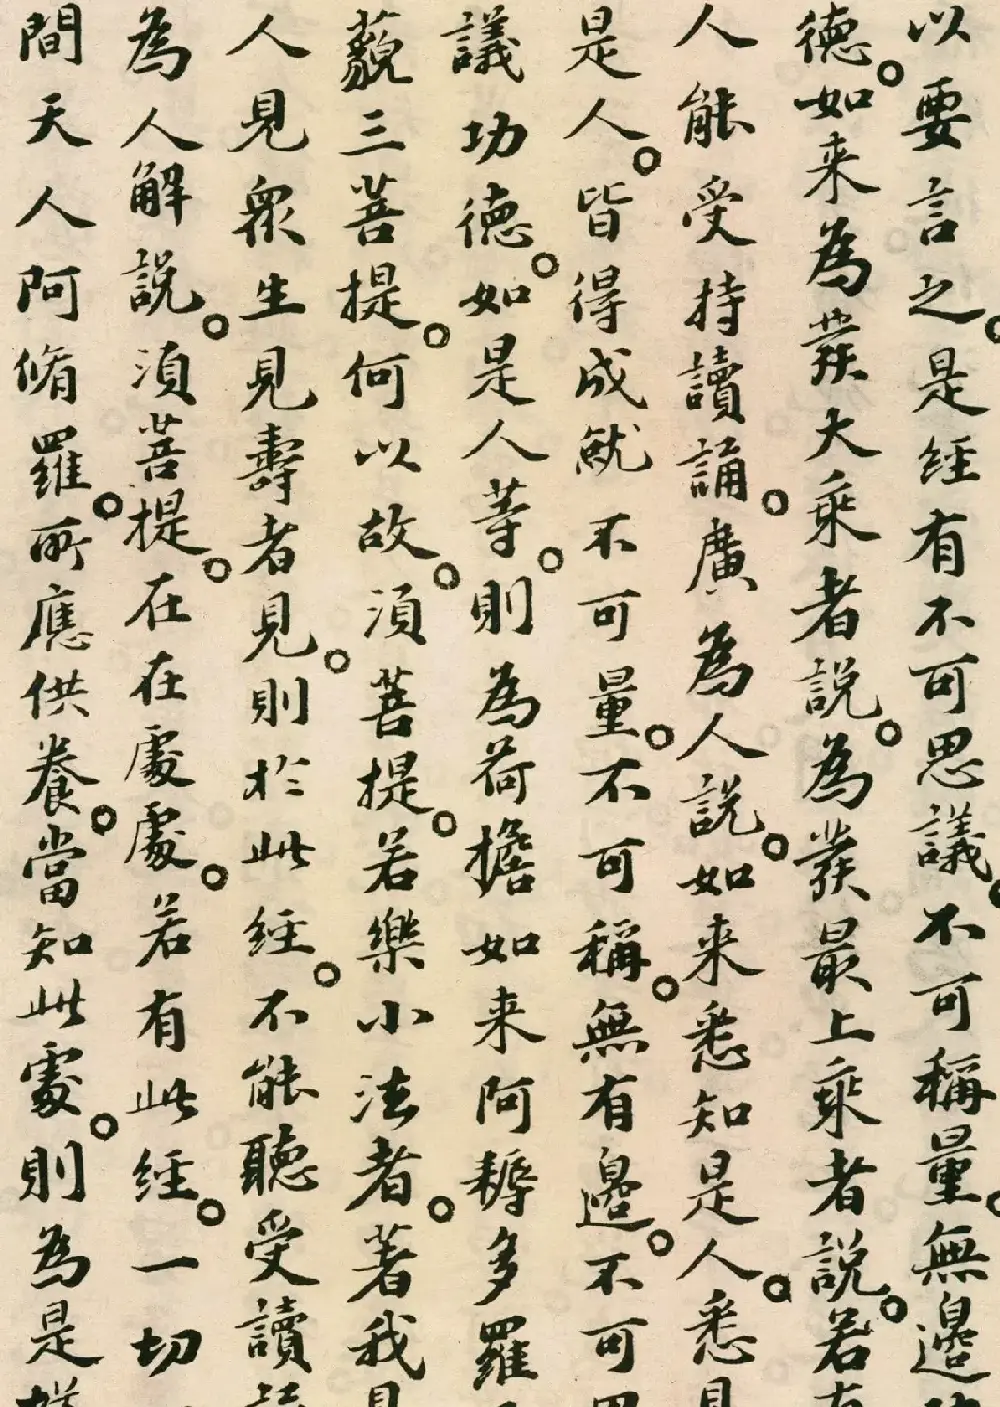 以要言之。是經有不可思議。不可稱量。無邊
德。如来為發大乘者說。為發最上乘者說。若
人能受持讀誦。廣為人說。如来悉知是人。悉
是人。皆得成就不可量。不可稱。無有邊。不可
議功德。如是人等。則為荷擔如来阿耨多羅
藐三菩提。何以故。須菩提。若樂小法者。著我
人見衆生見壽者見。則於此經。不能聽受讀
為人解説。須菩提。在在處處。若有此經。一切
間天人阿脩羅。所應供養。當知此處。則為是